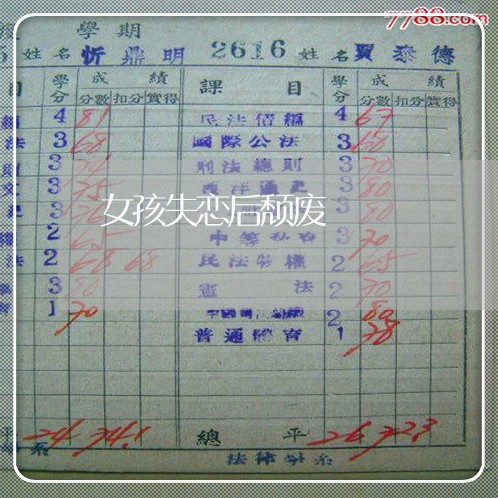 7788.com
學期
姓名 忻鼎明 2616 姓名 賈泰德
目 學分 成績 課目 學分 成績
分數 扣分 實得 分數 扣分 實得
4 81 民法債編 4 67
法 3 68 國際公法 3 60
3 刑法總則 3 70
3 75 西洋通史 3 80
3 3 80
女孩失恋后颓废
2 65 3 70
法 2 68 68 民法物權 2 65
3 80 憲法 2 70
1 70 2 80
普通體育 1 78
平 24 74.1 總平 26 72.3
系 法律學系